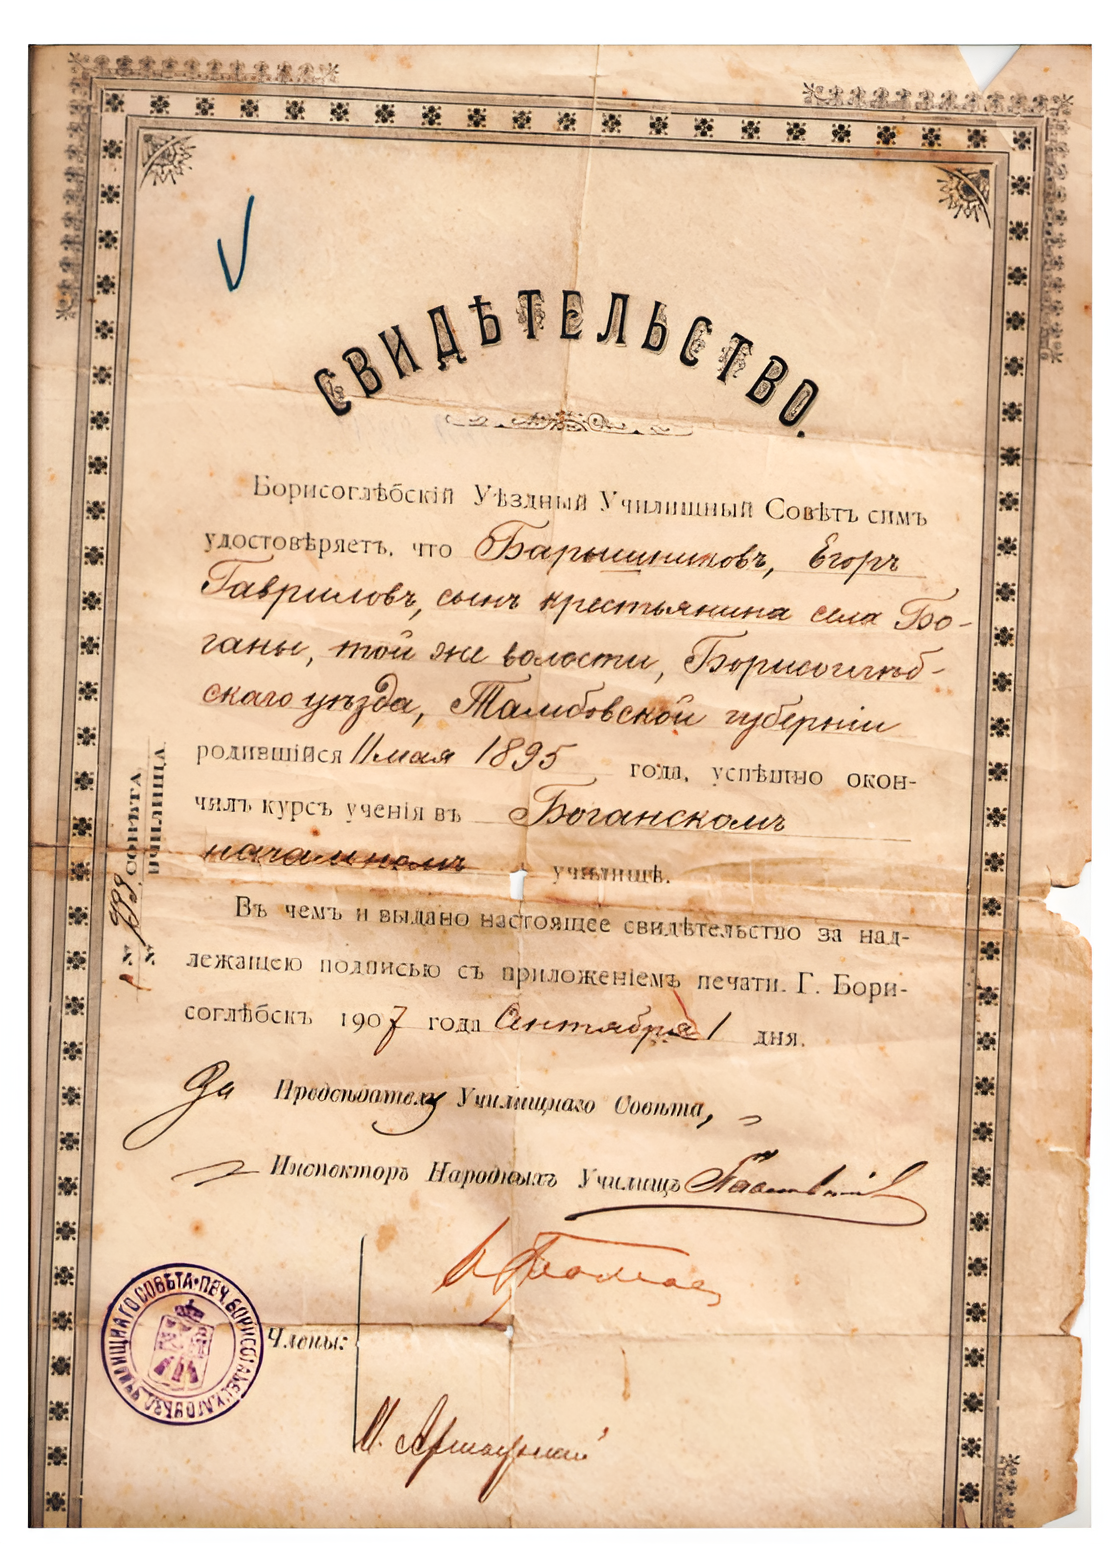 СВИДѢТЕЛЬСТВО.
Борисоглѣбскій Уѣздный Училищный Совѣтъ симъ
удостовѣряетъ, что Барышниковъ, Егоръ
Гавриловъ, сынъ крестьянина села Бо-
ганы, той же волости, Борисоглѣб-
скаго уѣзда, Тамбовской губерніи
родившійся 11 мая 1895 года, успѣшно окон-
чилъ курсъ ученія въ Боганскомъ
начальномъ училищѣ.
Въ чемъ и выдано настоящее свидѣтельство за над-
лежащею подписью съ приложеніемъ печати. Г. Бори-
соглѣбскъ 1907 года Сентября 1 дня.
За Предсѣдателя Училищнаго Совѣта,
Инспекторъ Народныхъ Училищъ
Члены:
№ СОВѢТА
№ УЧИЛИЩА
ПЕЧ. БОРИСОГЛѢБСКАГО УѢЗДН. УЧИЛИЩНАГО СОВѢТА